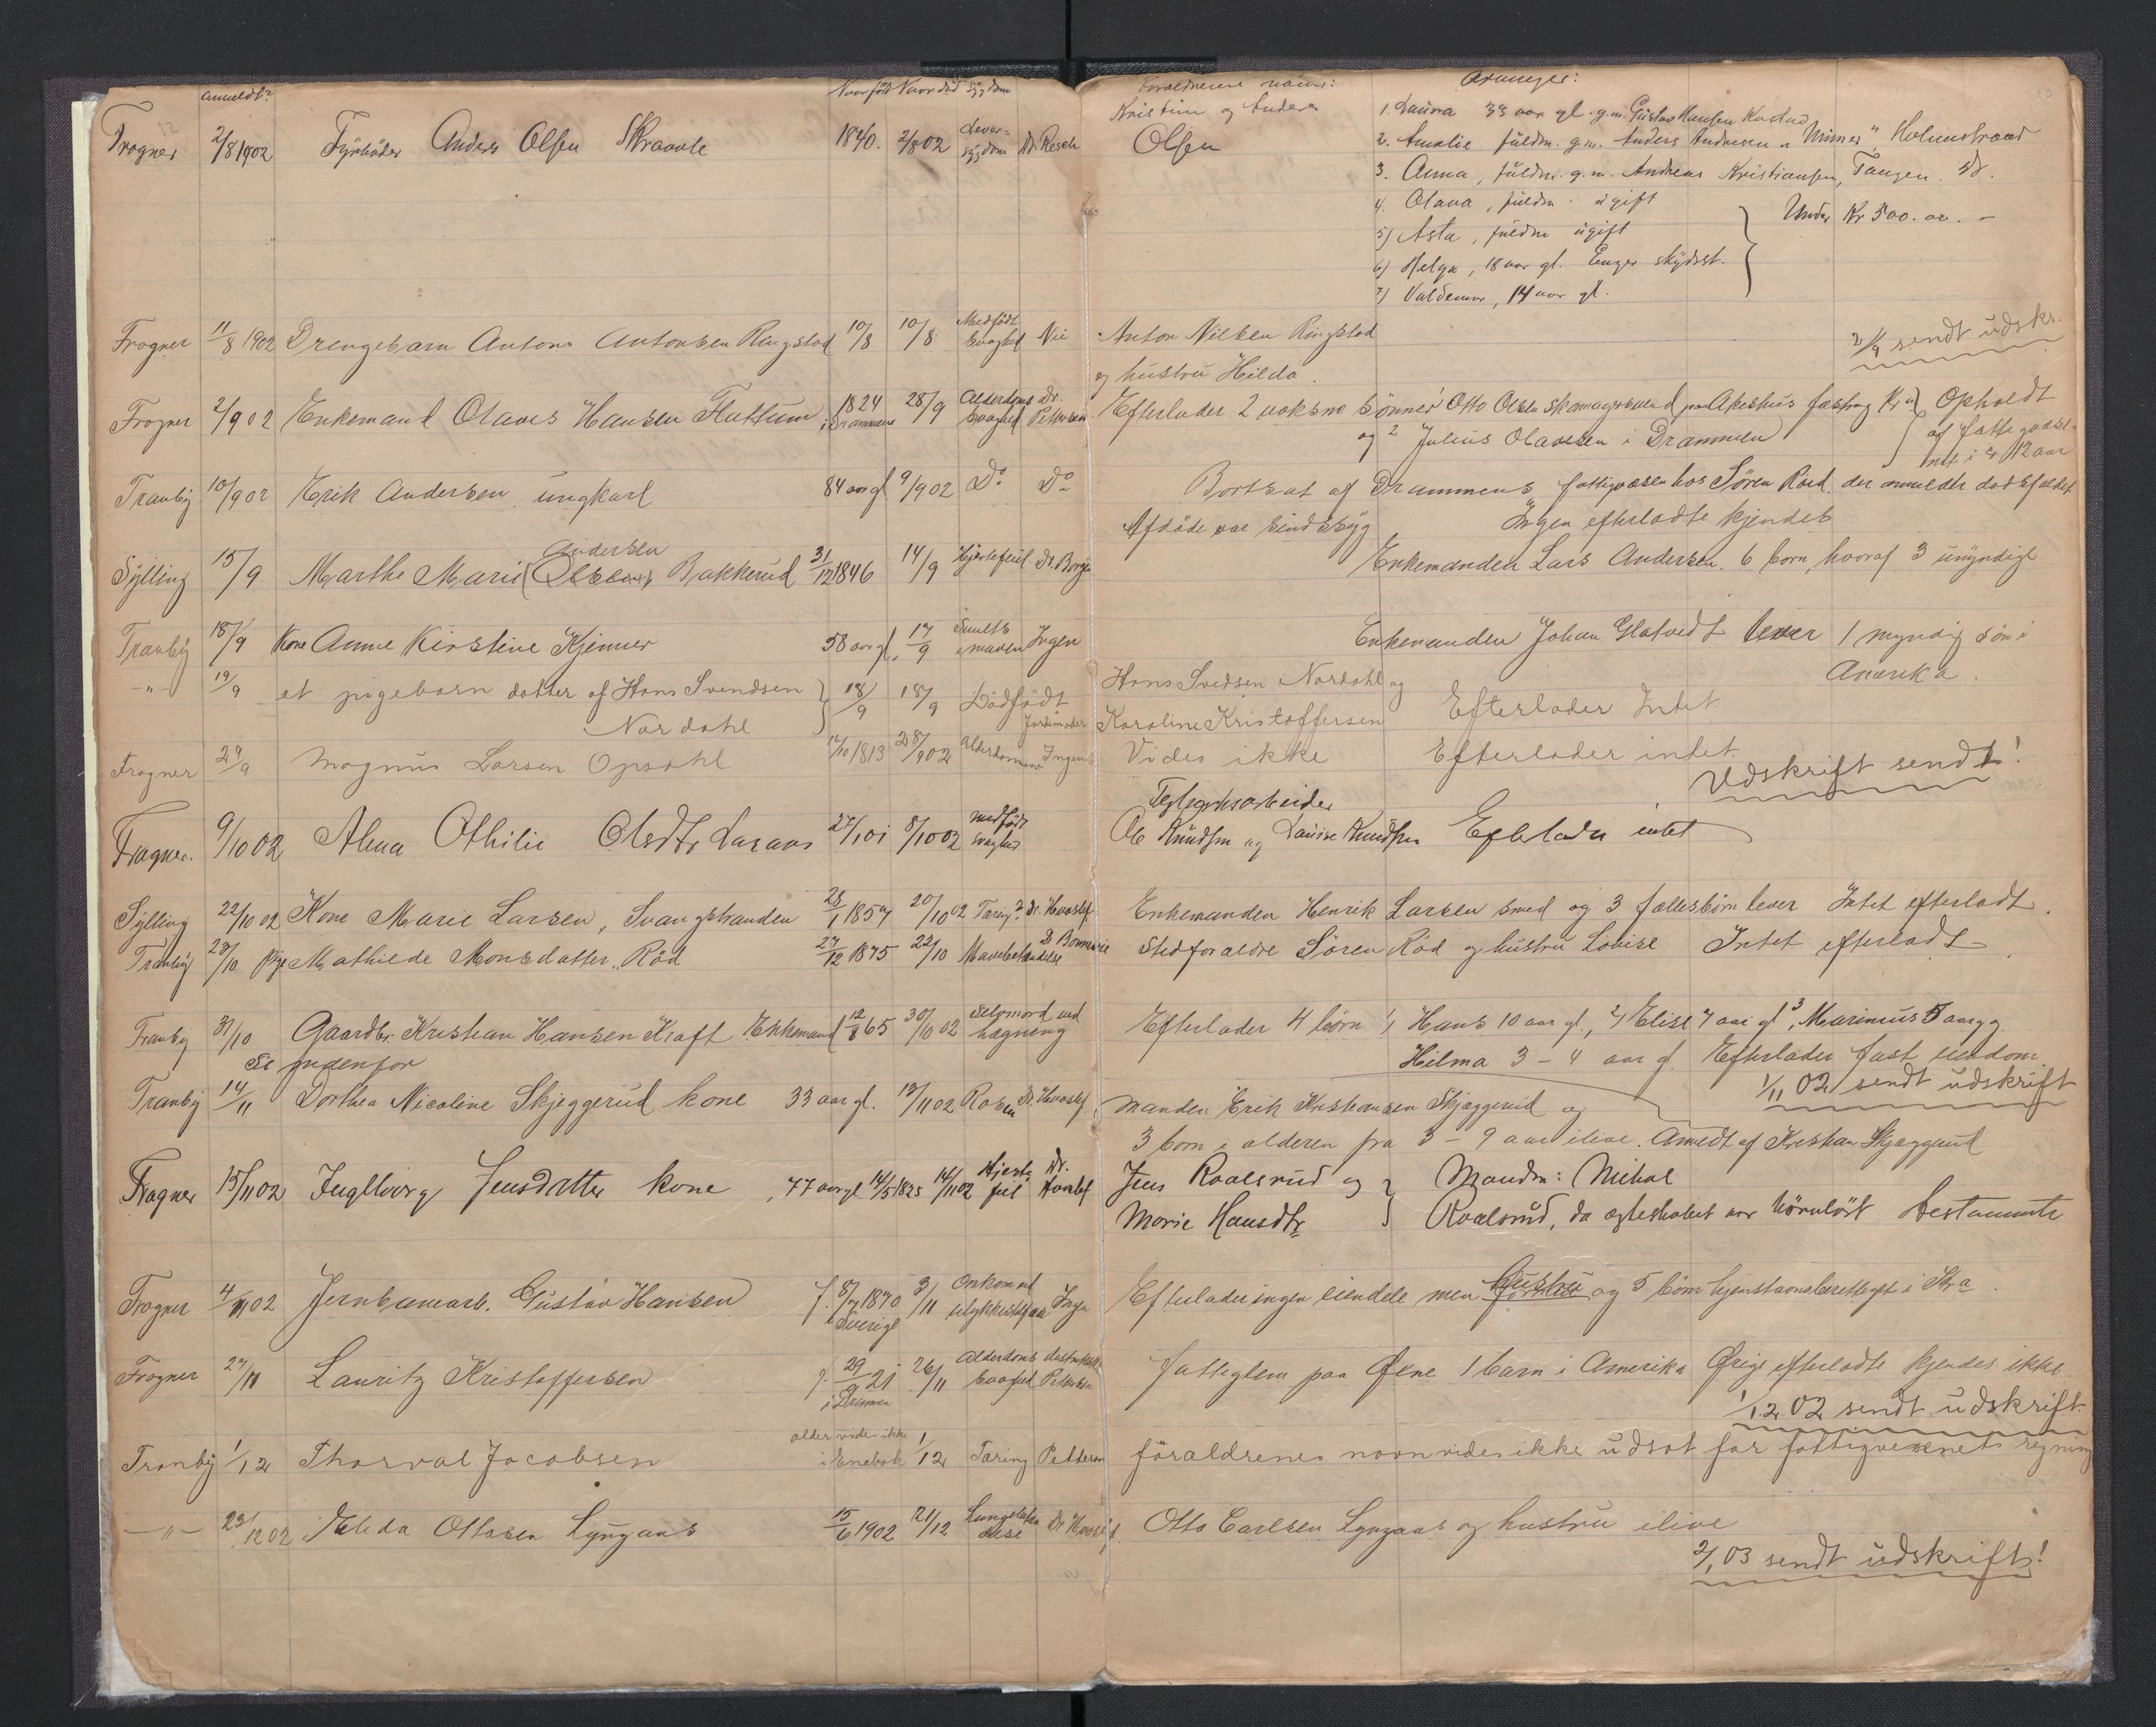 anmeldt Naar född Naar död sygdom Forældrenes navne: Arvinger:
Frogner 2/8 1902 Fyrböder Anders Olsen Skraavle 1840. 2/8 02 Lever-sygdom Dr. Resch Kristine og Anders Olsen
1. Laura 33 aar gl. g.m. Gustav Hansen
2. Amalie fuldm. g.m. Anders Andresen Holmestrand
3. Anna, fuldm. g.m. Andreas Kristiansen, Tangen. Dr.
4. Olava, fuldm. ugift
5) Asta, fuldm ugift Under Kr 500.00. –
6) Helga, 18 aar gl. Enger skydsst.
7) Valdemar, 14 aar gl.
2/9 sendt udskr.
Frogner 11/8 1902 Drengebarn Antons Antonsen Ringstad 10/8 10/8 Medfödt svaghed Nei Anton Nilsen Ringstad
og hustru Hilda.
Frogner 2/9 02 Enkemand Olaves Hansen Flattum 1824 i Drammen 28/9 Alderdoms svaghed Dr. Pettersen Efterlader 2 voksne sönner 1 Otto Olsen paa Akershus fæstng Kra Opholdt
og 2 Julius Olavesen i Drammen af fattigvæse-
net i 12 aar
Tranby 10/9 02 Erik Andersen ungkarl 84 aar gl 9/9 02 Do Do Bortsat af Drammens fattigvæsen hos Sören Röed der anmelder dödsfaldet
Afdöde var sindssyg Ingen efterladte kjendes
Sylling 15/9 Marthe Marie (Olsen) Andersen Bakkerud 31/12 1846 14/9 Hjertefeil Dr Borge Enkemanden Lars Andersen. 6 born, hvoraf 3 umyndige
Tranby 18/9 Kone Anne Kirstine Kjenner 58 aar gl. 17/9 i maven Ingen Enkemanden Johan Glatvedt lever 1 myndig sön i
Amerika.
–"– 19/9 et pigebarn datter af Hans Svendsen 18/9 18/9 Dödfödt Jordmoder Hans Svedsen Nordahl og
Nordahl Karoline Kristoffersen Efterlader Intet
Frogner 29/9 Magnus Larsen Opsahl 12/10 1813 28/9 02 Alderdommen Ingen Vides ikke Efterlader intet
Udskrift sendt!
Frogner. 9/10 02 Alma Othilie Olsdtr 27/1 01 8/10 02 medfödt svaghed Teglverksarbeider
Ole Knudsen og Lauise Knudsen Efterlader intet
Sylling 22/10 02 Kone Marie Larsen, Svangstranden 28/1 1857 20/10 02 Taring? Dr. Hvoslef Enkemanden Henrik Larsen smed og 3 fællesbörn lever Intet efterladt.
Tranby 23/10 Pige Mathilde Monsdatter, Röd 27/12 1875 22/10 Mavebetændelse Stedforældre Sören Röd og hustru Lovise Intet efterladt.
Tranby 31/10 Gaardbr. Kristian Hansen Kraft Enkemand 12/8 65 30/10 02 Selvmord ved hægning Efterlader 4 börn 1/ Hans 10 aar gl., 2/ Elise 7 aar gl 3, Marinius 5 aar og
Hilma 3 – 4 aar gl. Efterlader fast eiendom
Se indenfor 1/11 02 sendt udskrift
Tranby 14/11 Dorthea Nicoline Skjeggerud kone 33 aar gl. 13/11 02 Rosen Dr. Hvoslef Manden Erik Kristiansen Skjæggerud og
3 born i alderen fra 3 – 9 aar ilive. Anmedt af Kristian Skjæggerud
Frogner 15/11 02 Ingeborg Jensdatter kone, 77 aar gl 14/5 1825 14/11 02 Hjerte feil Dr. Hvoslef Jens Raalsrud og Manden: Mikal
Marie Hansdtr Raalsrud, da egteskabet var börnlöst testamente
Frogner 4/11 02 Jernbanearb. Gustav Hansen f. 8/7 1870 Sverige 3/11 Omkom ved ulykkestilfælde Ingen Efterlader ingen eiendele men hustru og 5 börn hjemstavnsberettiget i Kra.
Frogner 27/11 Lauritz Kristoffersen f. 29/9 21 i Drammen 26/11 Alderdoms svaghed distriktsl. Pettersen Fattiglem paa Öene 1 barn i Amerika Örige efterladte kjendes ikke
1/12 02 sendt udskrift.
Tranby 1/12 Thorval Jacobsen alder vides ikke i Enebak 1/12 Taring Pettersen foraldrenes navn vides ikke udsat for fattigvesenets regning
–"– 23/12 02 Elida Ottosen Lyngaas 15/6 1902 21/12 Lungebetændelse Dr Hvoslef Otto Carlsen Lyngaas og hustru ilive
2/1 03 sendt udskrift!